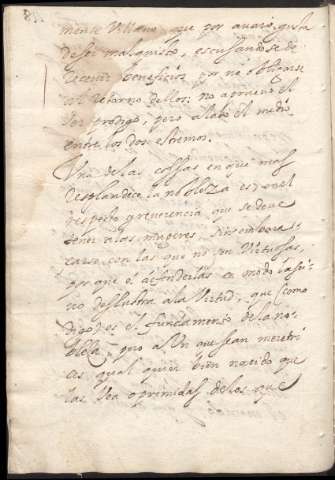 mente Villano que por avaro gusta
de ser malquisto, escusandose de
recevir beneficios por no obligarse
al retorno dellos: no apruevo el
ser prodigo, pero alabo el medio
entre los dos estremos.
Una de las cossas en que mas
resplandece la nobleza es en el
respecto y reverencia que se deve
tener a las mugeres, sin embara-
carse con las que no son Virtuosas,
por que el defenderlas en modo
no deslustra a la Virtud, que (como
digo) es el fundamento de la no-
bleza, pero aun que sean meretri
ces qual quier bien nacido que
las vea oprimidas de los que